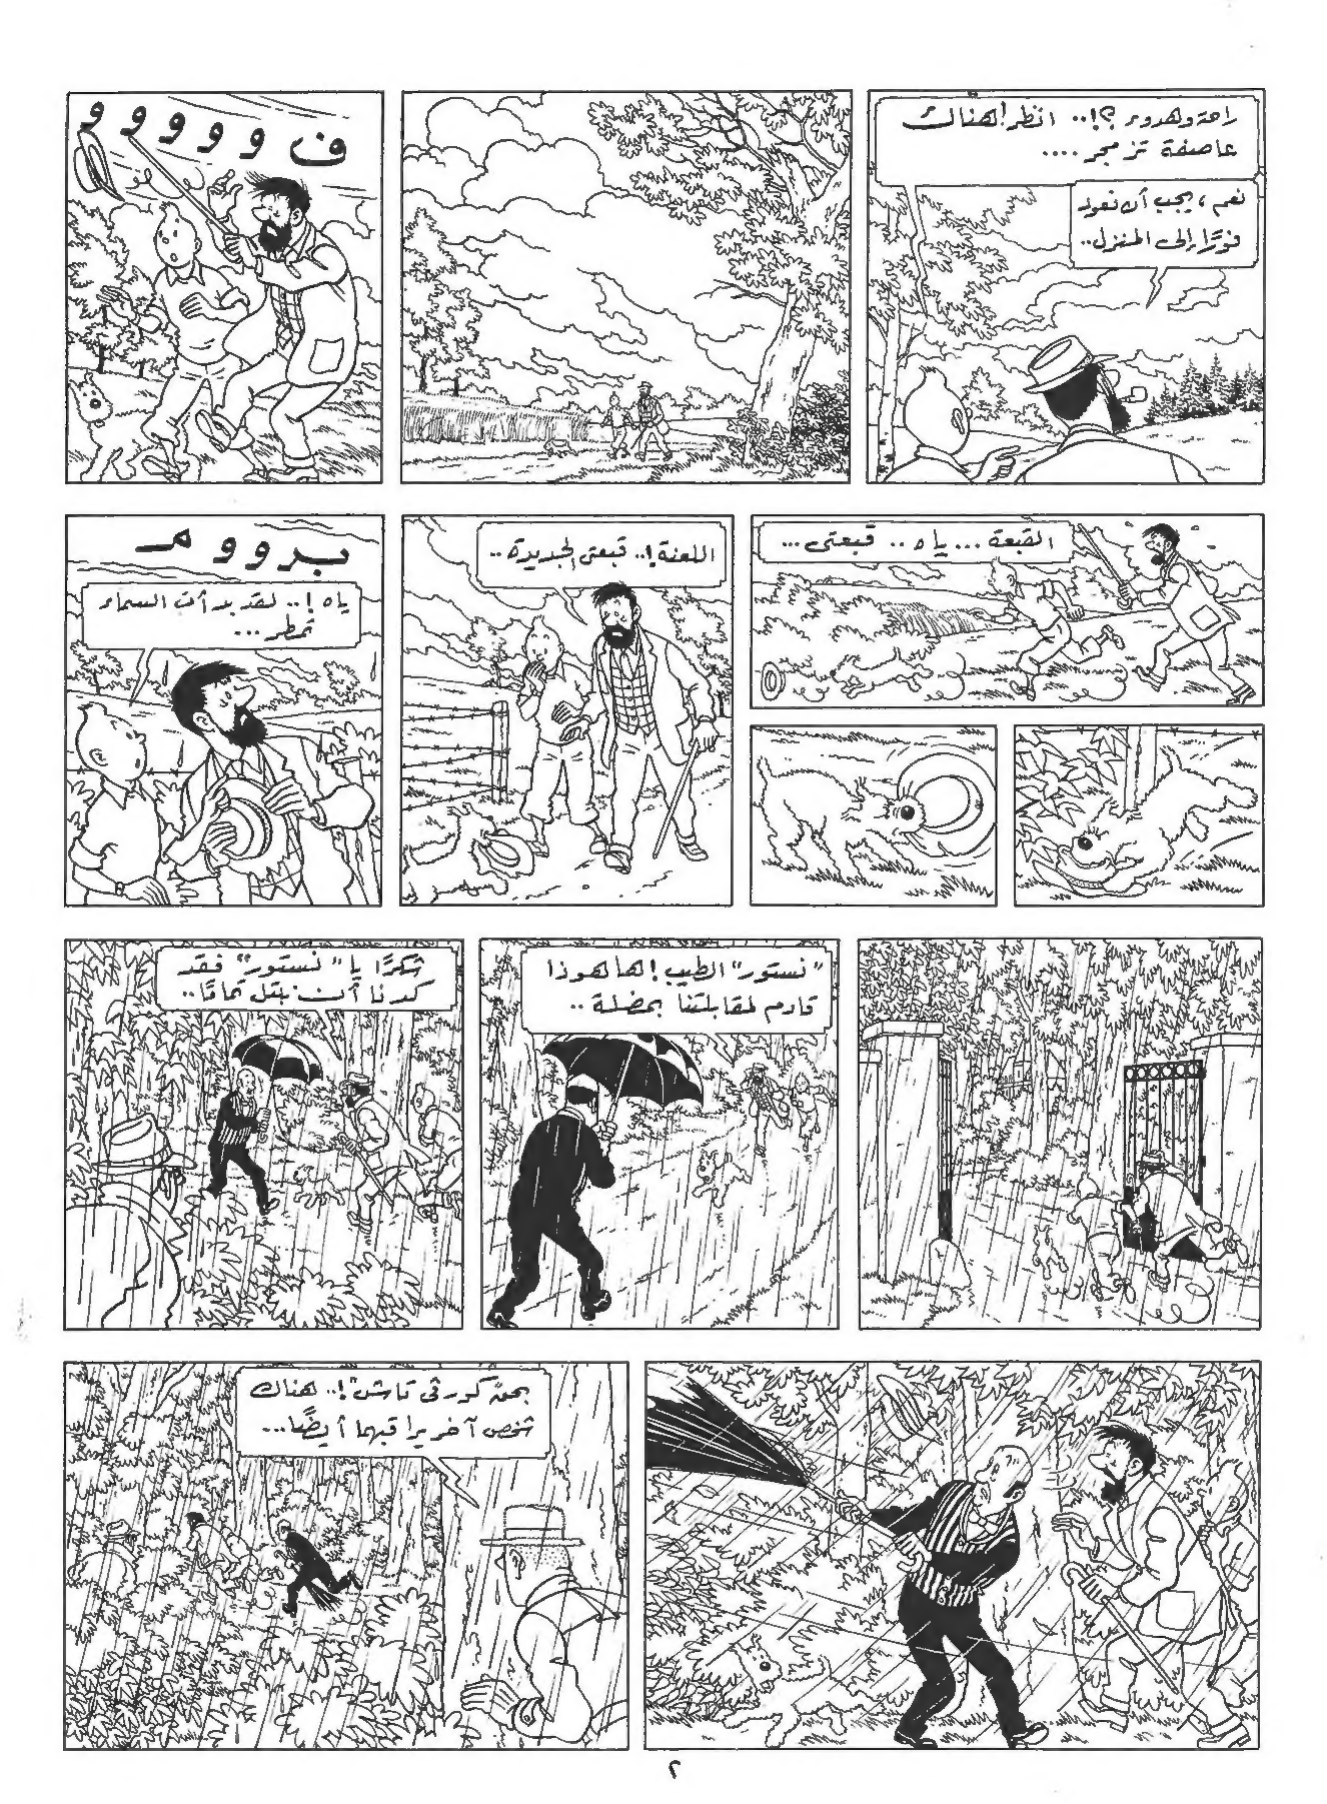 راحة وهدوء ؟!.. انظر! هناك
عاصفة تزمجر....
نعم، يجب أن نعود
فورًا إلى المنزل..
ف و و و و و
القبعة... ياه.. قبعتى...
اللعنة!.. قبعتى الجديدة..
بر و و م
ياه!.. لقد بدأت السماء
تمطر...
"نستور" الطيب! ها هوذا
قادم لمقابلتنا بمضلة..
شكرًا يا "نستور" فقد
كدنا أن نبتل تمامًا..
بحق كورفى تاش"!.. هناك
شخص آخر يراقبهما أيضًا...
٢